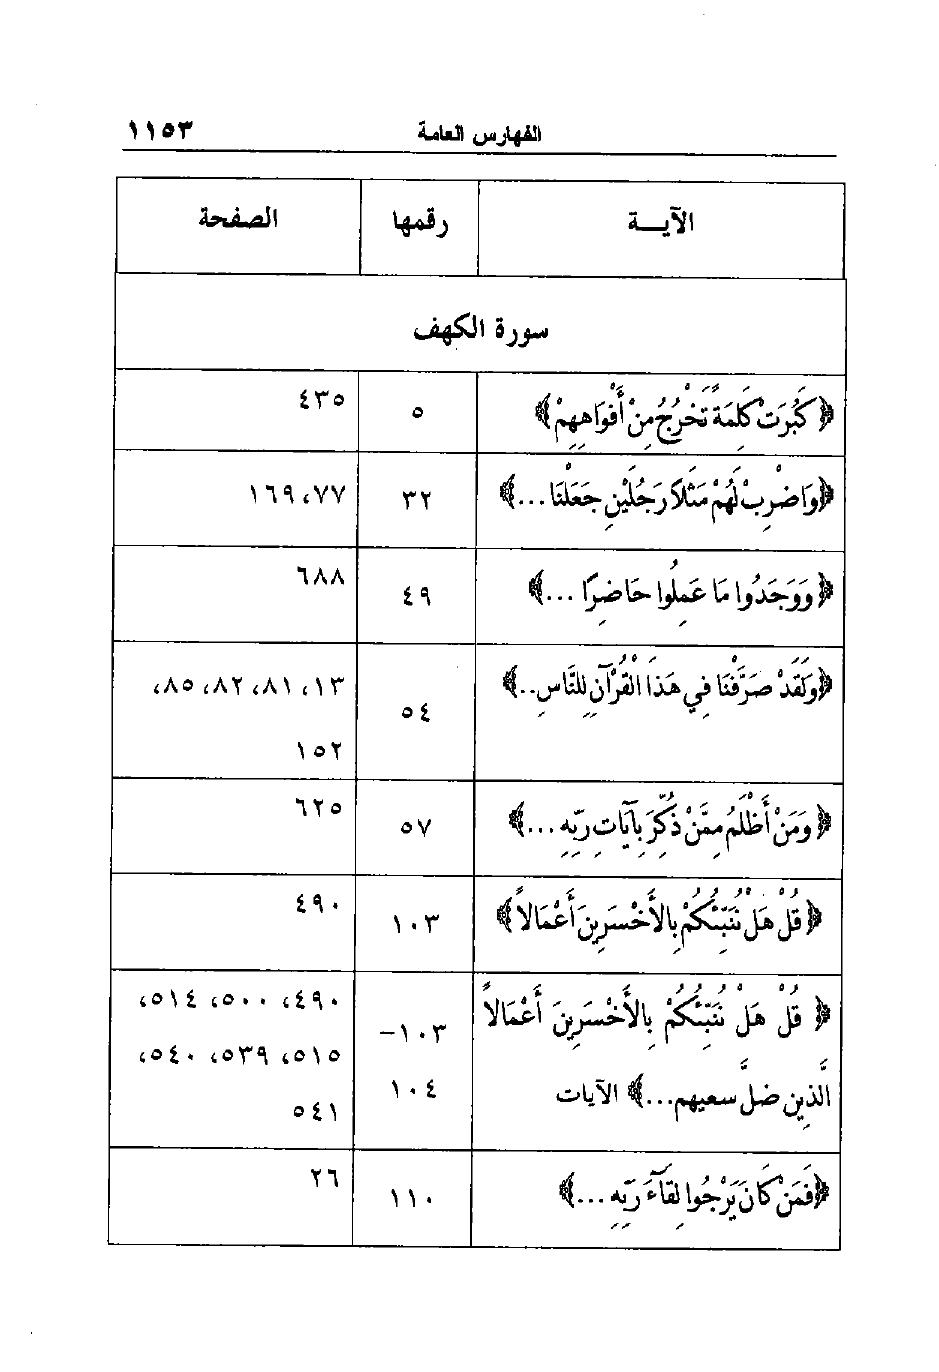 الفهارس العامة ١١٥٣
الآيـــة رقمها الصفحة
سورة الكهف
﴿كَبُرَتْ كَلِمَةً تَخْرُجُ مِنْ أَفْوَاهِهِمْ﴾ ٥ ٤٣٥
﴿وَاضْرِبْ لَهُمْ مَثَلاً رَجُلَيْنِ جَعَلْنَا ...﴾ ٣٢ ٧٧، ١٦٩
﴿وَوَجَدُوا مَا عَمِلُوا حَاضِرًا ...﴾ ٤٩ ٦٨٨
﴿وَلَقَدْ صَرَّفْنَا فِي هَذَا الْقُرْآنِ لِلنَّاسِ..﴾ ٥٤ ١٣، ٨١، ٨٢، ٨٥،
١٥٢
﴿وَمَنْ أَظْلَمُ مِمَّنْ ذُكِّرَ بِآيَاتِ رَبِّهِ ...﴾ ٥٧ ٦٢٥
﴿قُلْ هَلْ نُنَبِّئُكُمْ بِالأَخْسَرِينَ أَعْمَالاً﴾ ١٠٣ ٤٩٠
﴿قُلْ هَلْ نُنَبِّئُكُمْ بِالأَخْسَرِينَ أَعْمَالاً ١٠٣- ٤٩٠، ٥٠٠، ٥١٤،
الَّذِينَ ضَلَّ سعيهم...﴾ الآيات ١٠٤ ٥١٥، ٥٣٩، ٥٤٠،
٥٤١
﴿فَمَنْ كَانَ يَرْجُوا لِقَآءَ رَبِّهِ ...﴾ ١١٠ ٢٦